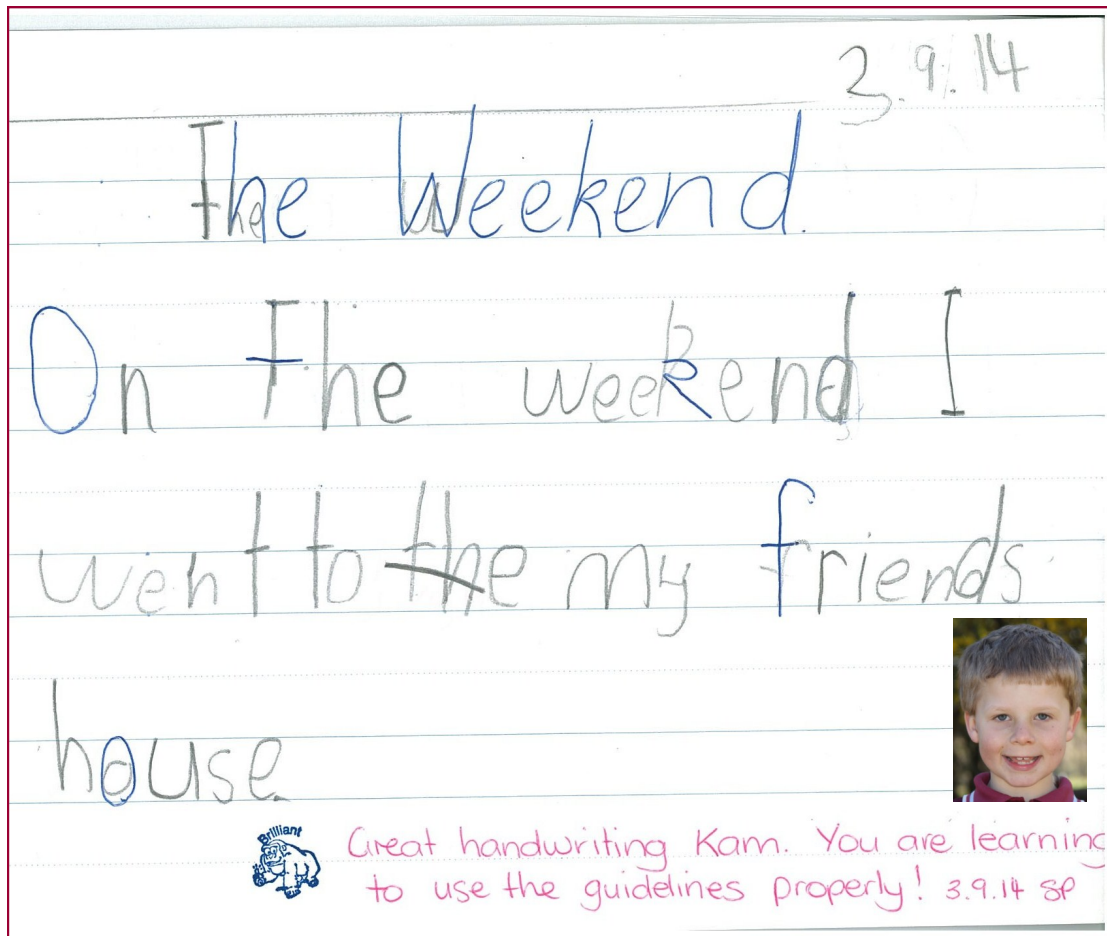 3.9.14
The Weekend.
On The weekend I
went to the my friends
house.
Brilliant
Great handwriting Kam. You are learning
to use the guidelines properly! 3.9.14 SP